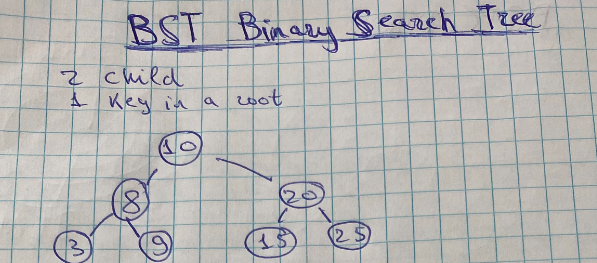 BST Binary Search Tree
2 child
1 key in a root
10
8 20
3 9 15 25